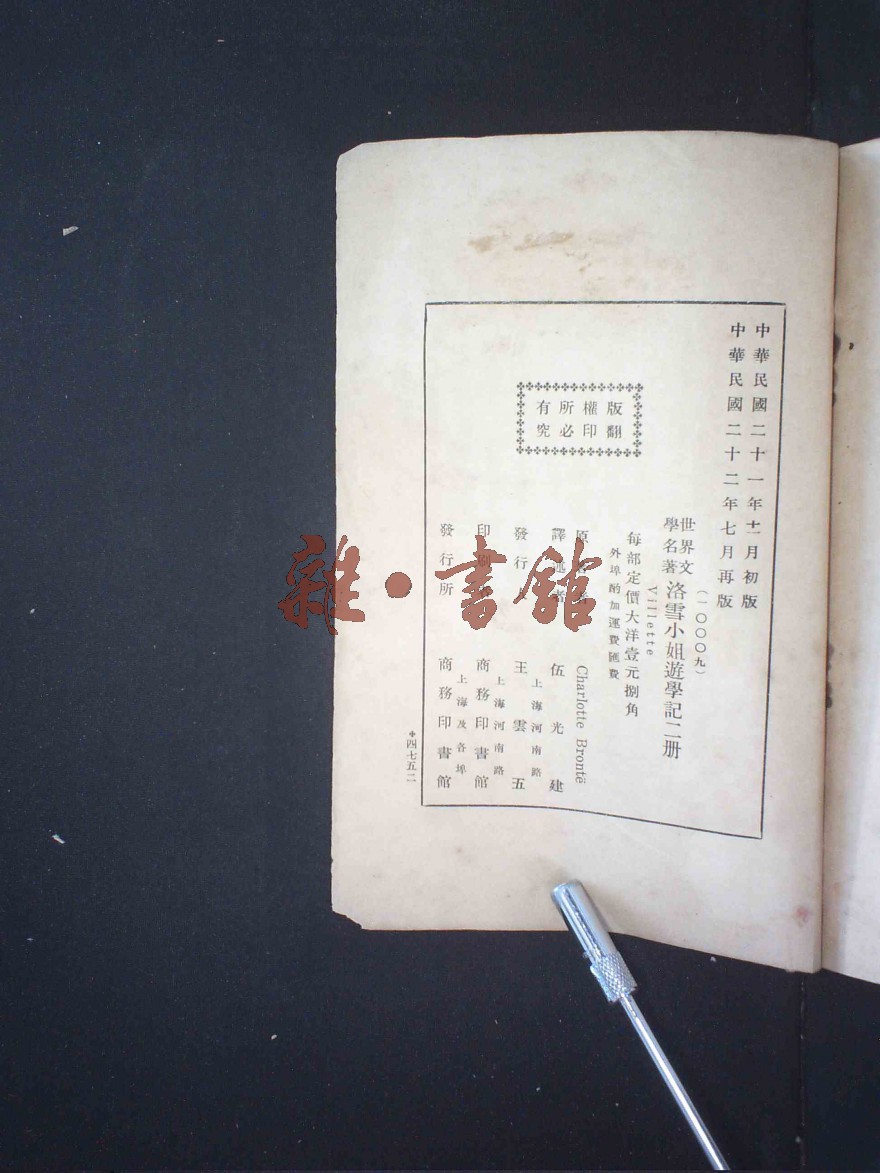 中華民國二十一年十二月初版
中華民國二十二年七月再版
（一〇〇〇九）
世界文學名著 洛雪小姐遊學記二册
Villette
每部定價大洋壹元捌角
外埠酌加運費匯費
版權所有
翻印必究
原著者 Charlotte Brontë
譯述者 伍光建
上海河南路
發行人 王雲五
上海河南路
印刷所 商務印書館
上海及各埠
發行所 商務印書館
四七五二
雜·書館